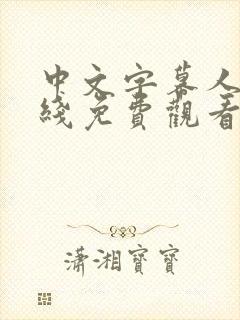 中文字幕人
綫免費觀看
瀟湘寶寶